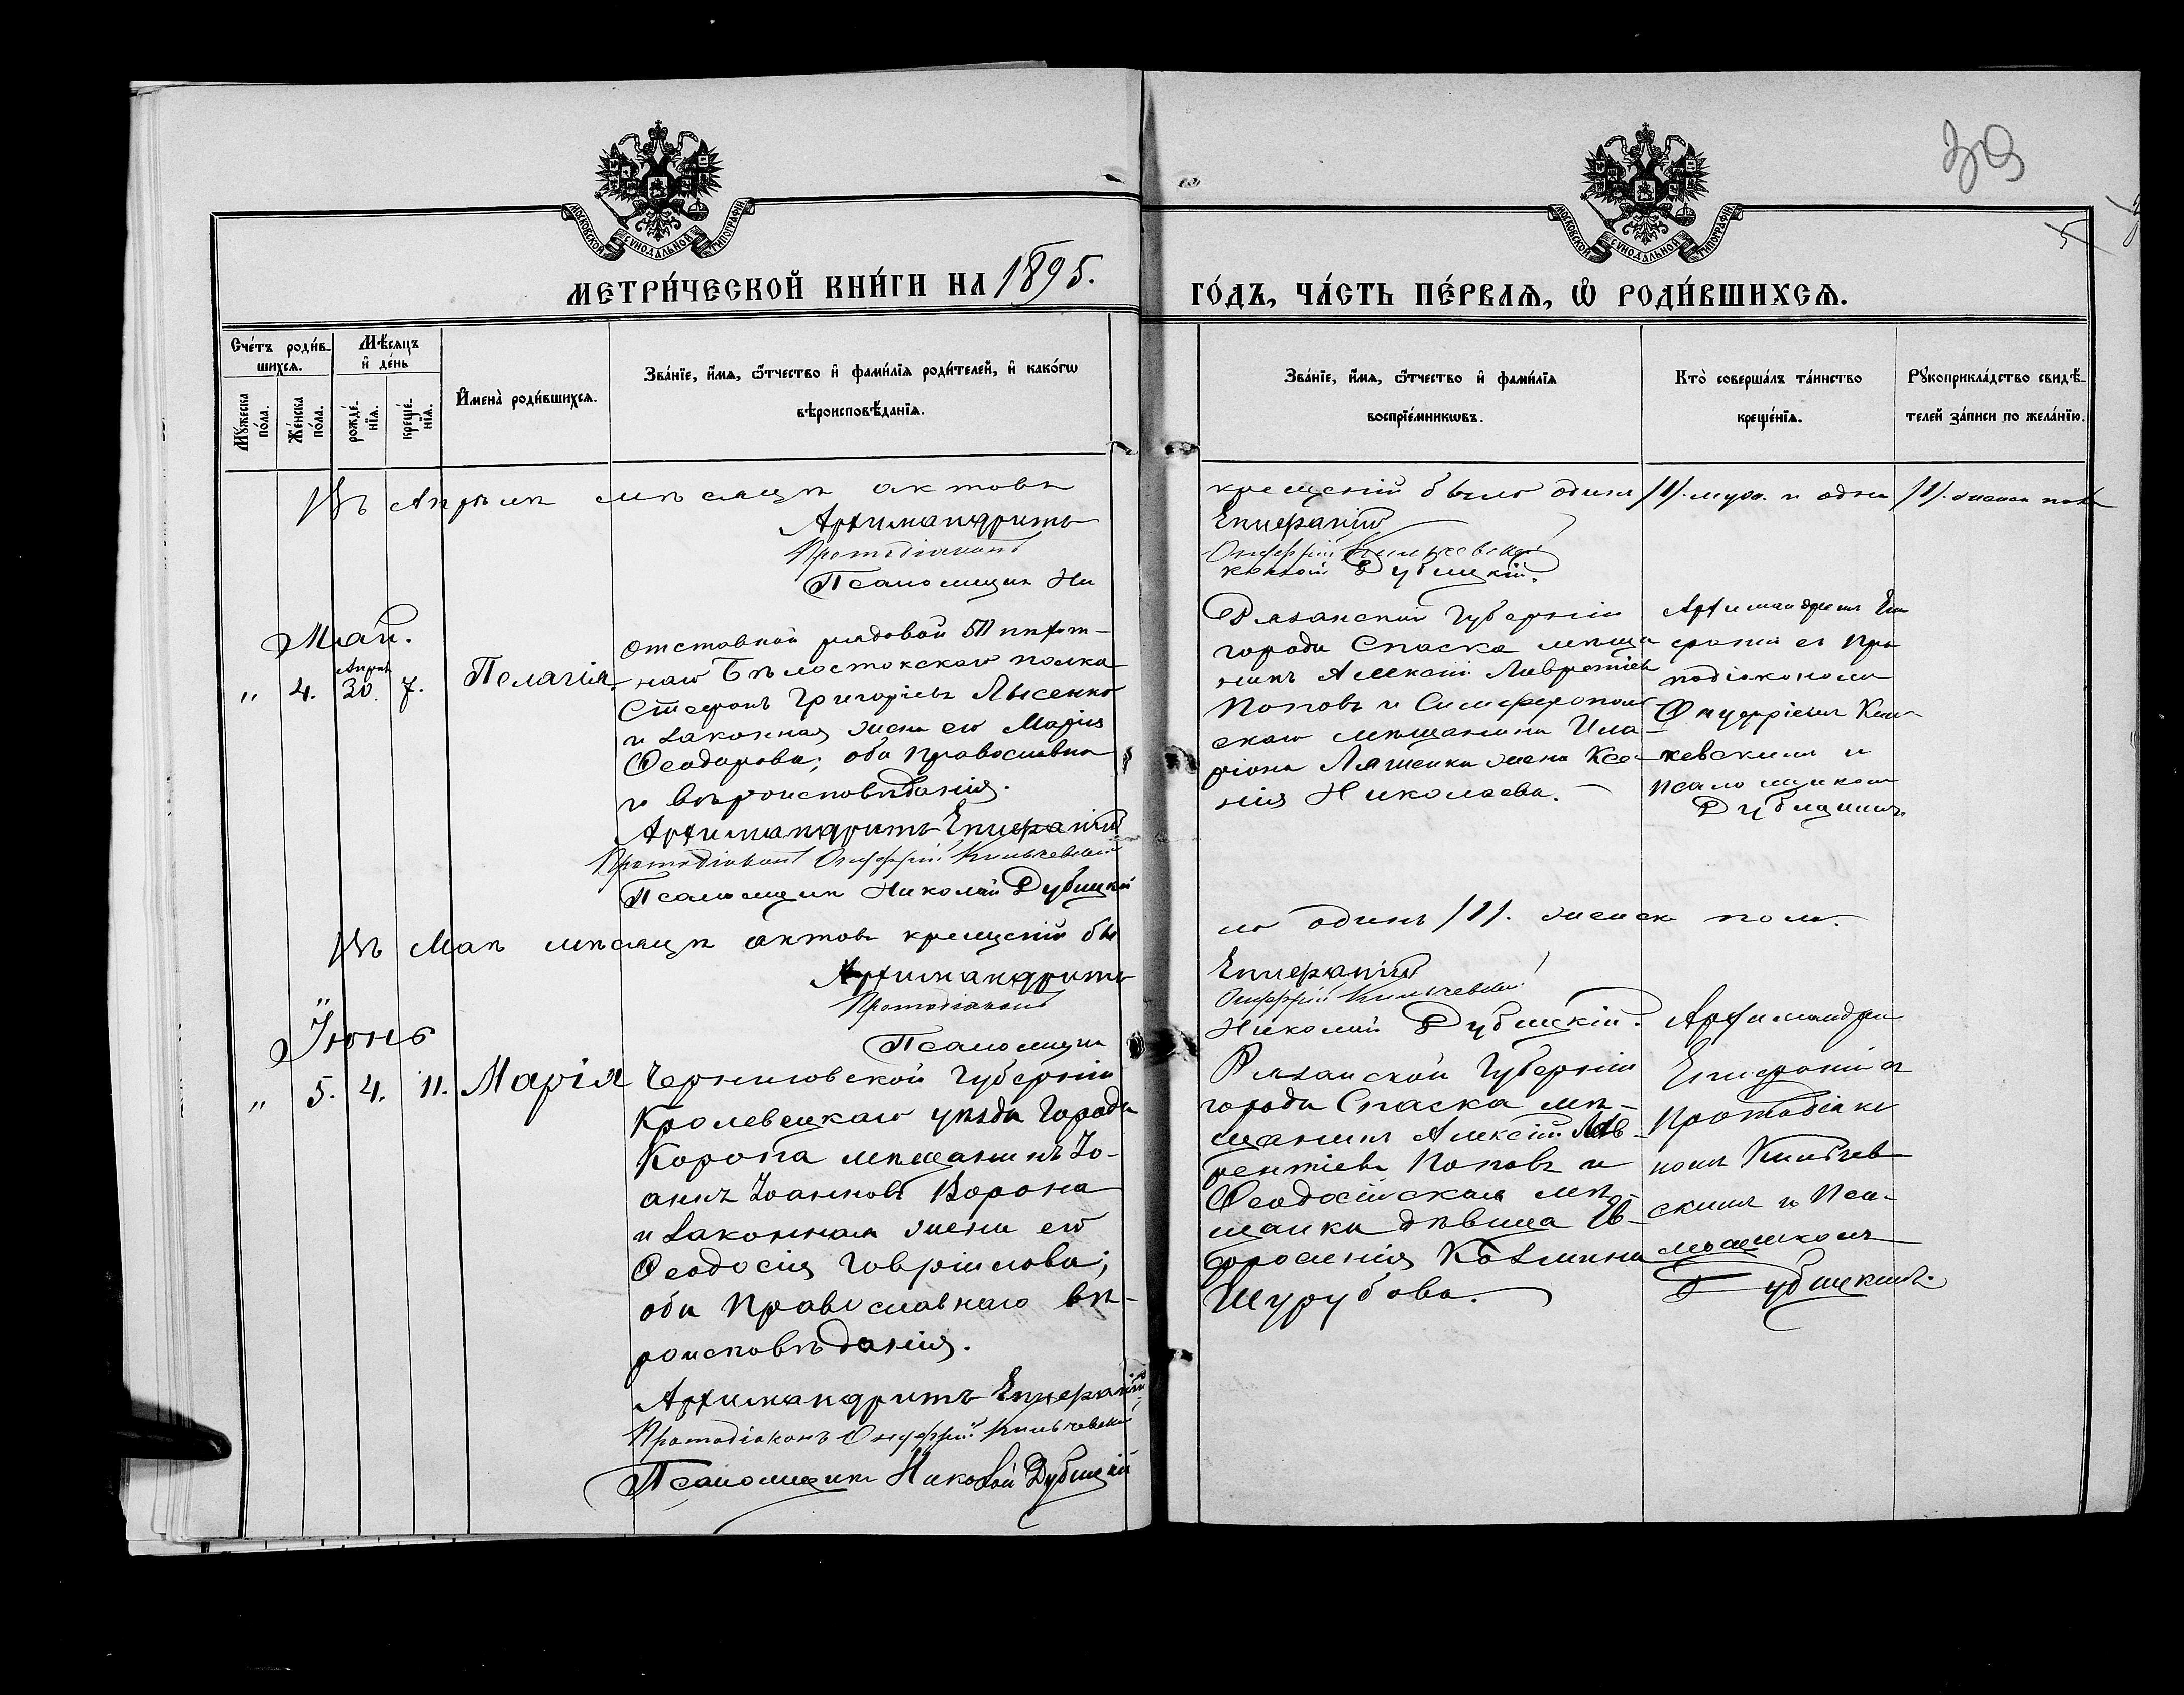 39
МОСКОВСКОЙ СѴНОДАЛЬНОЙ ТИПОГРАФІИ
МОСКОВСКОЙ СѴНОДАЛЬНОЙ ТИПОГРАФІИ
5
МЕТРИ́ЧЕСКОЙ КНИ́ГИ НА 1895. ГО́ДЪ, ЧА́СТЬ ПЕ́РВАѦ, Ѡ҆ РОДИ́ВШИХСѦ.
Сче́тъ роди́в-
шихсѧ.
Мѣ́сѧцъ
и҆ де́нь
Мꙋ́жеска
по́ла.
Же́нска
по́ла.
рожде́-
нїѧ.
креще́-
нїѧ.
И҆мена̀ роди́вшихсѧ.
Зва́нїе, и҆́мѧ, ѻ҆́тчество и҆ фами́лїѧ роди́телей, и҆ како́гѡ
вѣроисповѣ́данїѧ.
Зва́нїе, и҆́мѧ, ѻ҆́тчество и҆ фами́лїѧ
воспрїе́мникѡвъ.
Кто̀ соверша́лъ та́инство
креще́нїѧ.
Рꙋкоприкла́дство свидѣ́-
телей за́писи по жела́нїю.
Въ Апрѣлѣ мѣсяцѣ актовъ крещеній было одинъ /1/. муж. и одна /1/. женск пола
Архимандритъ Епифаній
Протодіаконъ Онуффрій Кильчевскій
Псаломщик Николай Дубицкій.
Май.
" 4. Апрѣл 30. 7. Пелагія
отставной рядовой 51 пѣхот-
наго Бѣлостокскаго полка
Стефанъ Григорьевъ Лысенко
и законная жена его Марія
Ѳеодорова; оба православна
го вѣроисповѣданія.
Архимандритъ Епифаній
Протодіаконъ Онуффрій Кильчевскій
Псаломщик Николай Дубицкій
Рязанской Губерніи
города Спаска мѣща
нинъ Алексій Лаврентіевъ
Поповъ и Симферополь-
скаго мѣщанина Ила-
ріона Ляшенки жена Ксе-
нія Николаева.
Архимандритъ Епи
фаній съ Про
тодіакономъ
Онуфріемъ Киль-
чевскимъ и
псаломщикомъ
Дубицкимъ.
Въ Маѣ мѣсяцѣ актовъ крещеній бы ло одинъ /1/. женска пола.
Архимандритъ Епифаній
Протодіаконъ Онуффрій Кильчевскій
Псаломщикъ Николай Дубицкій.
Іюнь
" 5. 4. 11. Марія
Черниговской Губерніи
Кролевецкаго уѣзда Города
Коропа мѣщанинъ Іо-
аннъ Іоанновъ Ворона
и законная жена его
Ѳеодосія Гавріилова;
оба Православнаго вѣ-
роисповѣданія.
Архимандритъ Епифаній
Протодіаконъ Онуффрій Кильчевскій
Псаломщикъ Николай Дубицкій
Рязанской Губерніи
города Спаска мѣ-
щанинъ Алексій Лав-
рентіевъ Поповъ и
Ѳеодосійская мѣ-
щанка дѣвица Ев-
фросинія Козмина
Шурубова.
Архимандри
Епифаній съ
Протодіако
номъ Кильчев
скимъ и Пса-
ломщикомъ
Дубицкимъ.